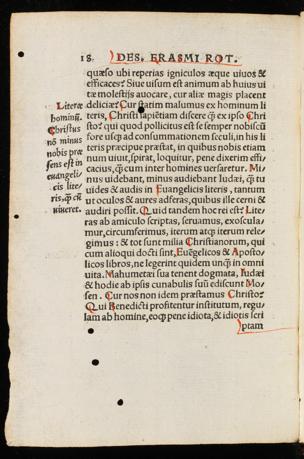 18. DES. ERASMI ROT.
quæso ubi reperias igniculos æque uiuos &
efficaces? Siue uisum est animum ab huius ui
tæ molestijs auocare, cur aliæ magis placent
deliciæ? Cur statim malumus ex hominum li
teris, Christi sapiẽtiam discere q̃ ex ipso Chri
sto? qui quod pollicitus est se semper nobiscũ
fore usq; ad consummationem seculi, in his li
teris præcipue præstat, in quibus nobis etiam
num uiuit, spirat, loquitur, pene dixerim effi
cacius, q̃ cum inter homines uersaretur. Mi
nus uidebant, minus audiebant Iudæi, q̃ tu
uides & audis in Euangelicis literis, tantum
ut oculos & aures adferas, quibus ille cerni &
audiri possit. Quid tandem hoc rei est? Lite
ras ab amiculo scriptas, seruamus, exoscula
mur, circumferimus, iterum atq; iterum rele
gimus: & tot sunt milia Christianorum, qui
cum alioqui docti sint, Euãgelicos & Aposto
licos libros, ne legerint quidem unq̃ in omni
uita. Mahumetæi sua tenent dogmata, Iudæi
& hodie ab ipsis cunabulis suũ ediscunt Mo
sen. Cur nos non idem præstamus Christo?
Qui Benedicti profitentur institutum, regu
lam ab homine, eoq; pene idiota, & idiotis scri
ptam
Literæ
hominũ.
Christus
nõ minus
nobis præ
sens est in
euangeli
cis lite/
ris, q̃ cũ
uiueret.